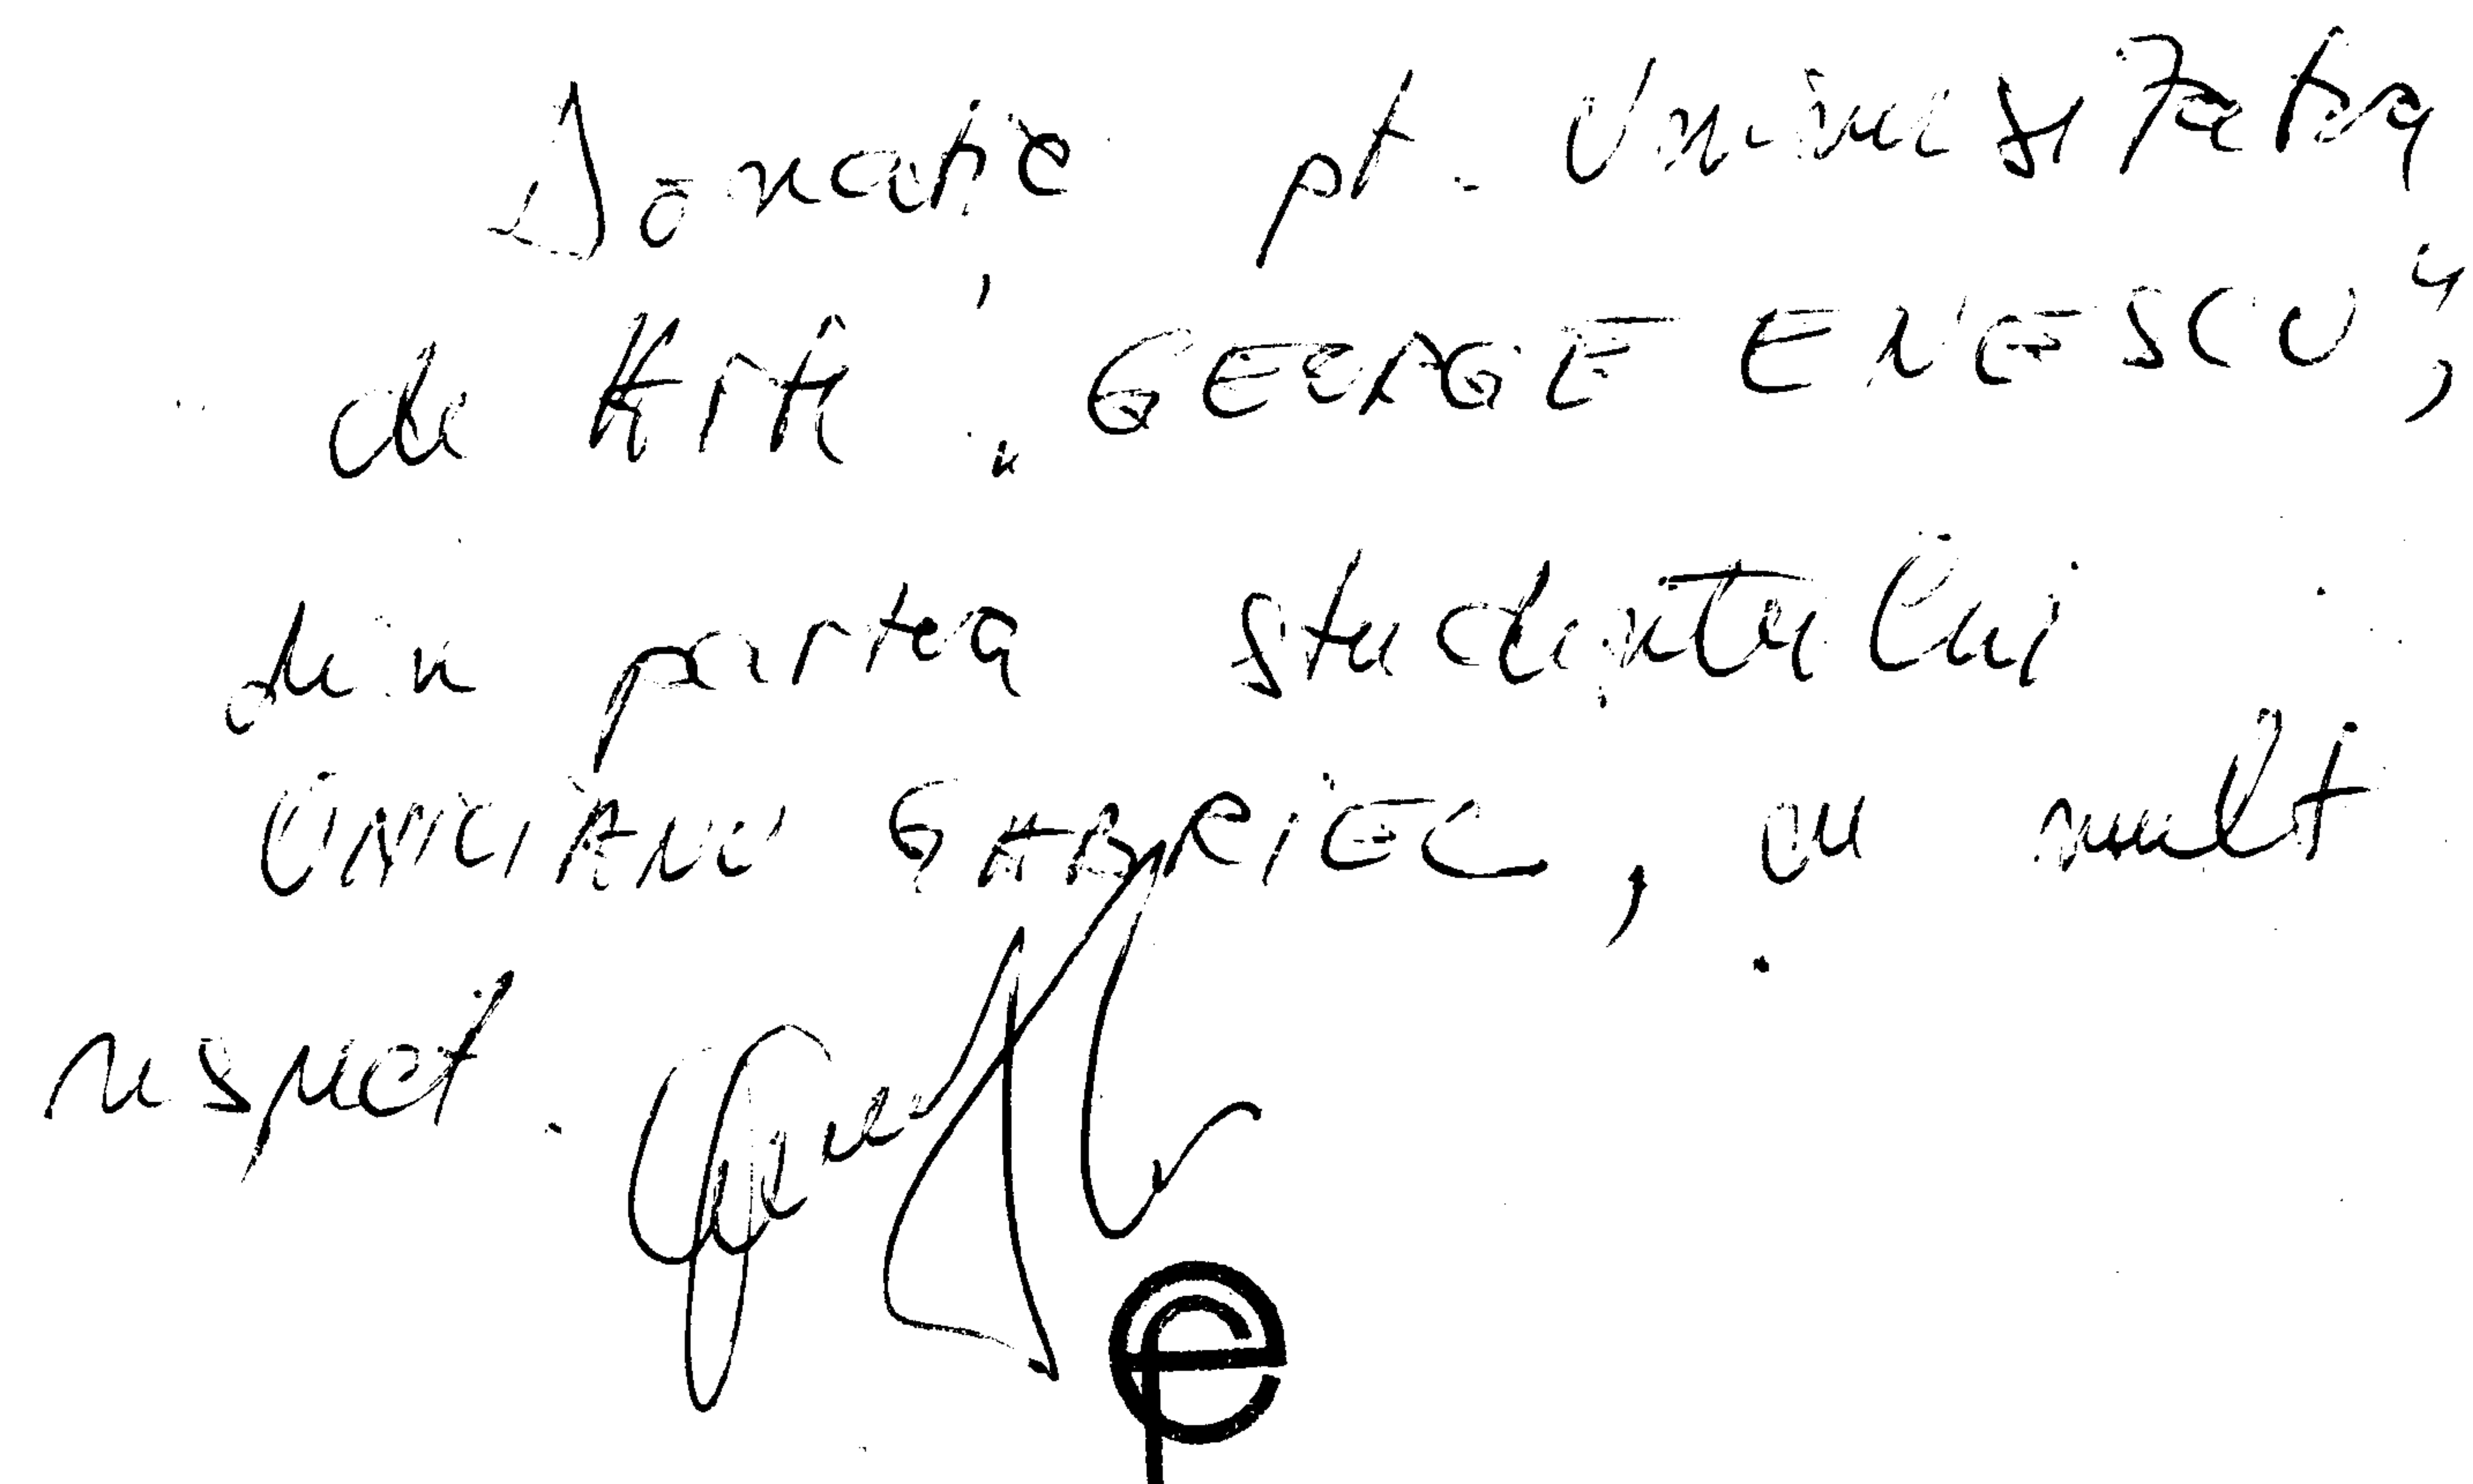 Donație pt. Universitatea
de Artă „GEORGE ENESCU”,
din partea studentului
GABRIEL, cu mult
respect.